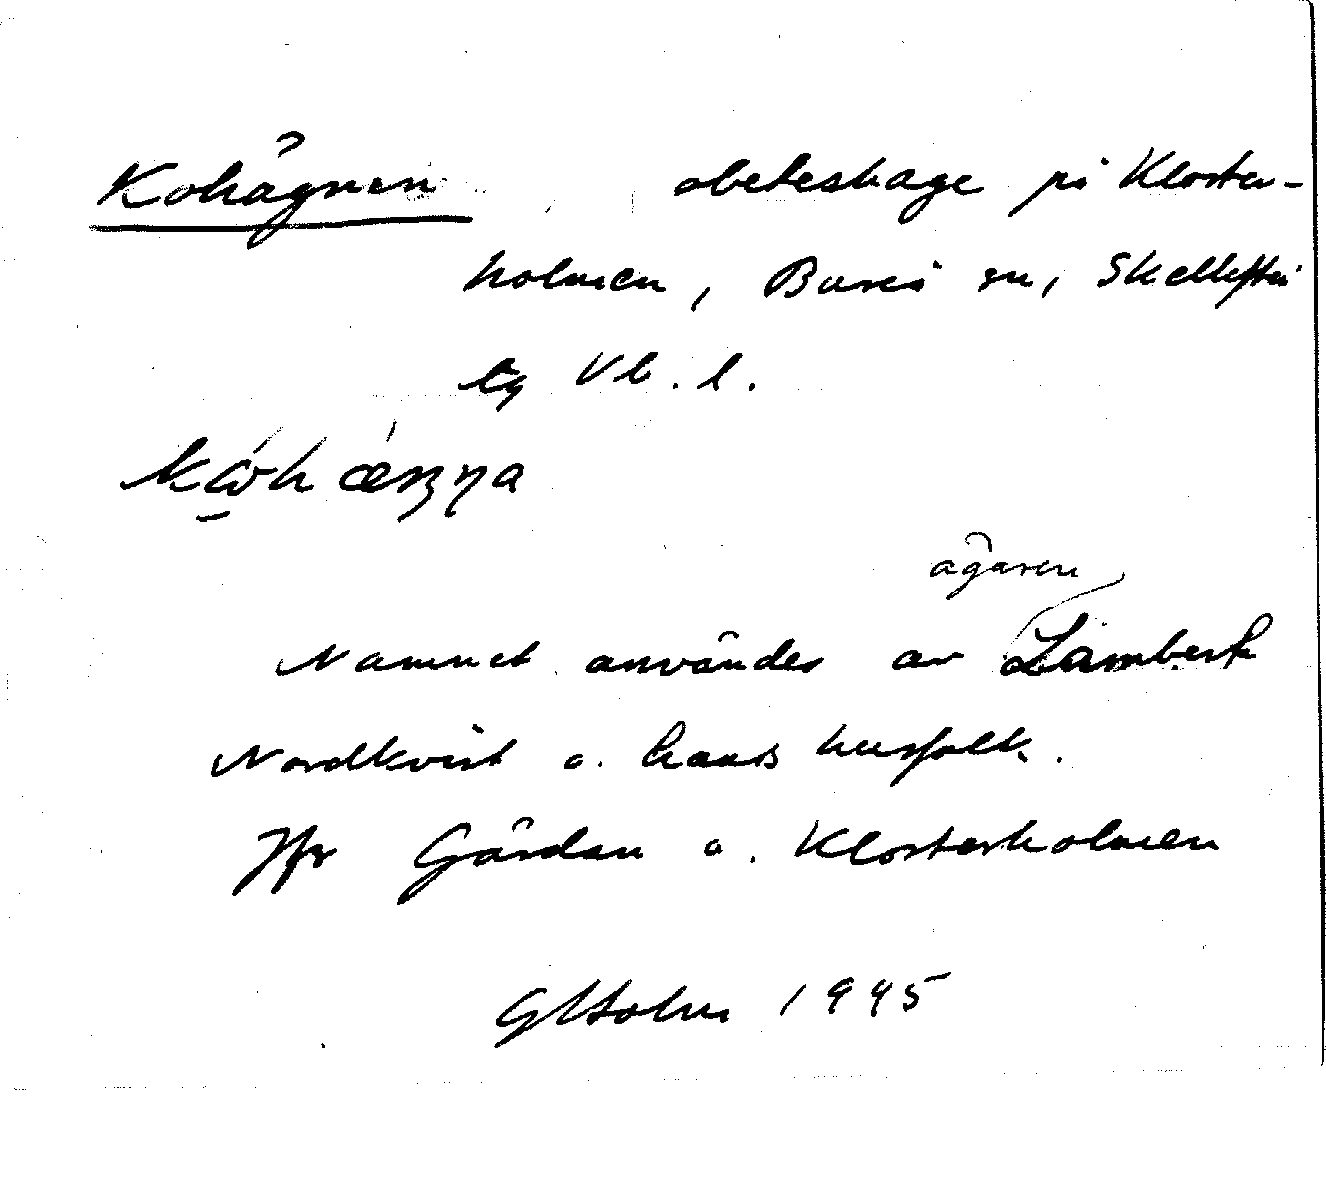 Kohägnen, obeteshage på Kloster-
holmen, Bureå sn, Skellefteå
tg Vb. l.
ägaren
Namnet användes av Lambert
Nordkvist o. hans husfolk.
Jfr Gärdan o. Klosterholmen
GHolm 1945